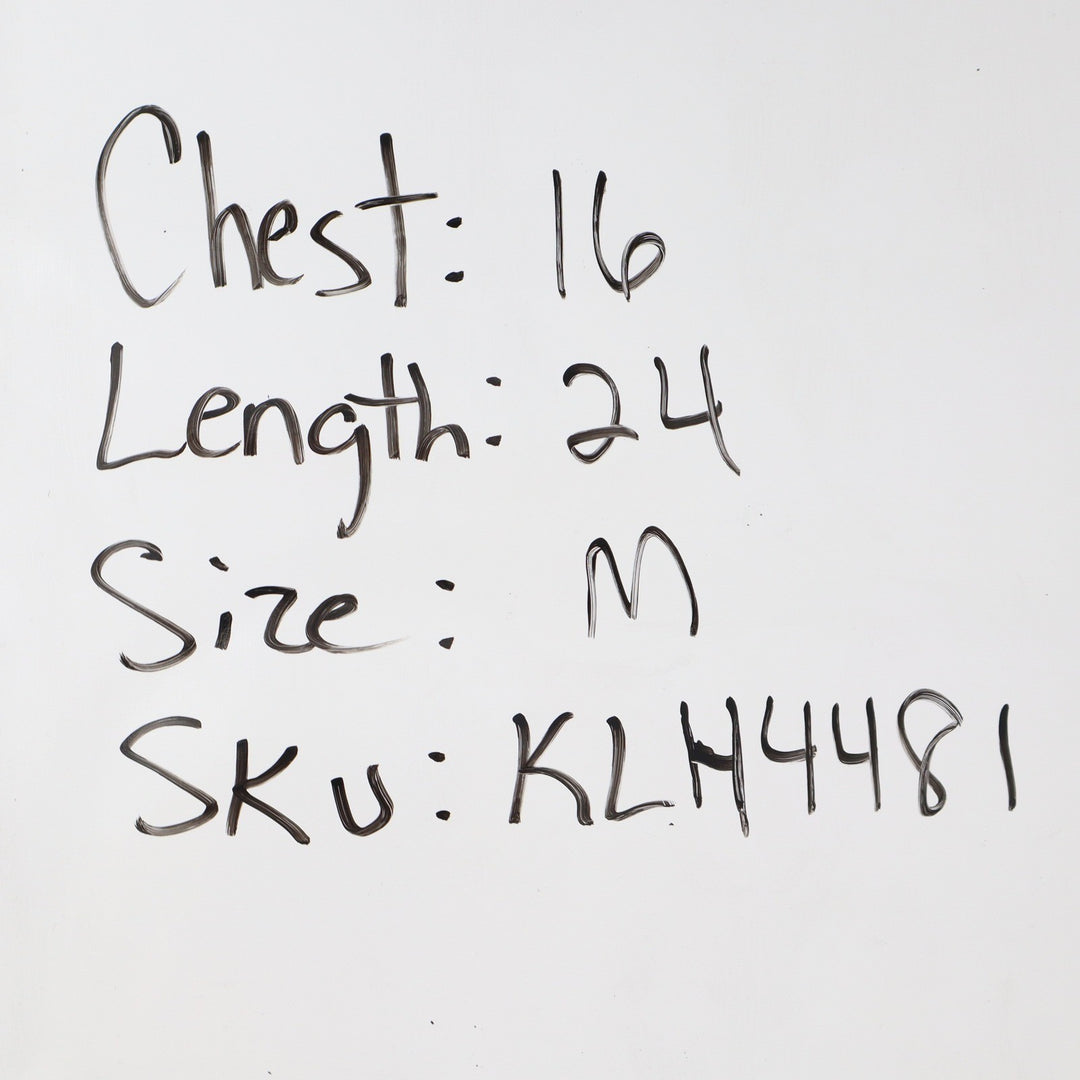 Chest: 16
Length: 24
Size: M
SKU: KLH4481